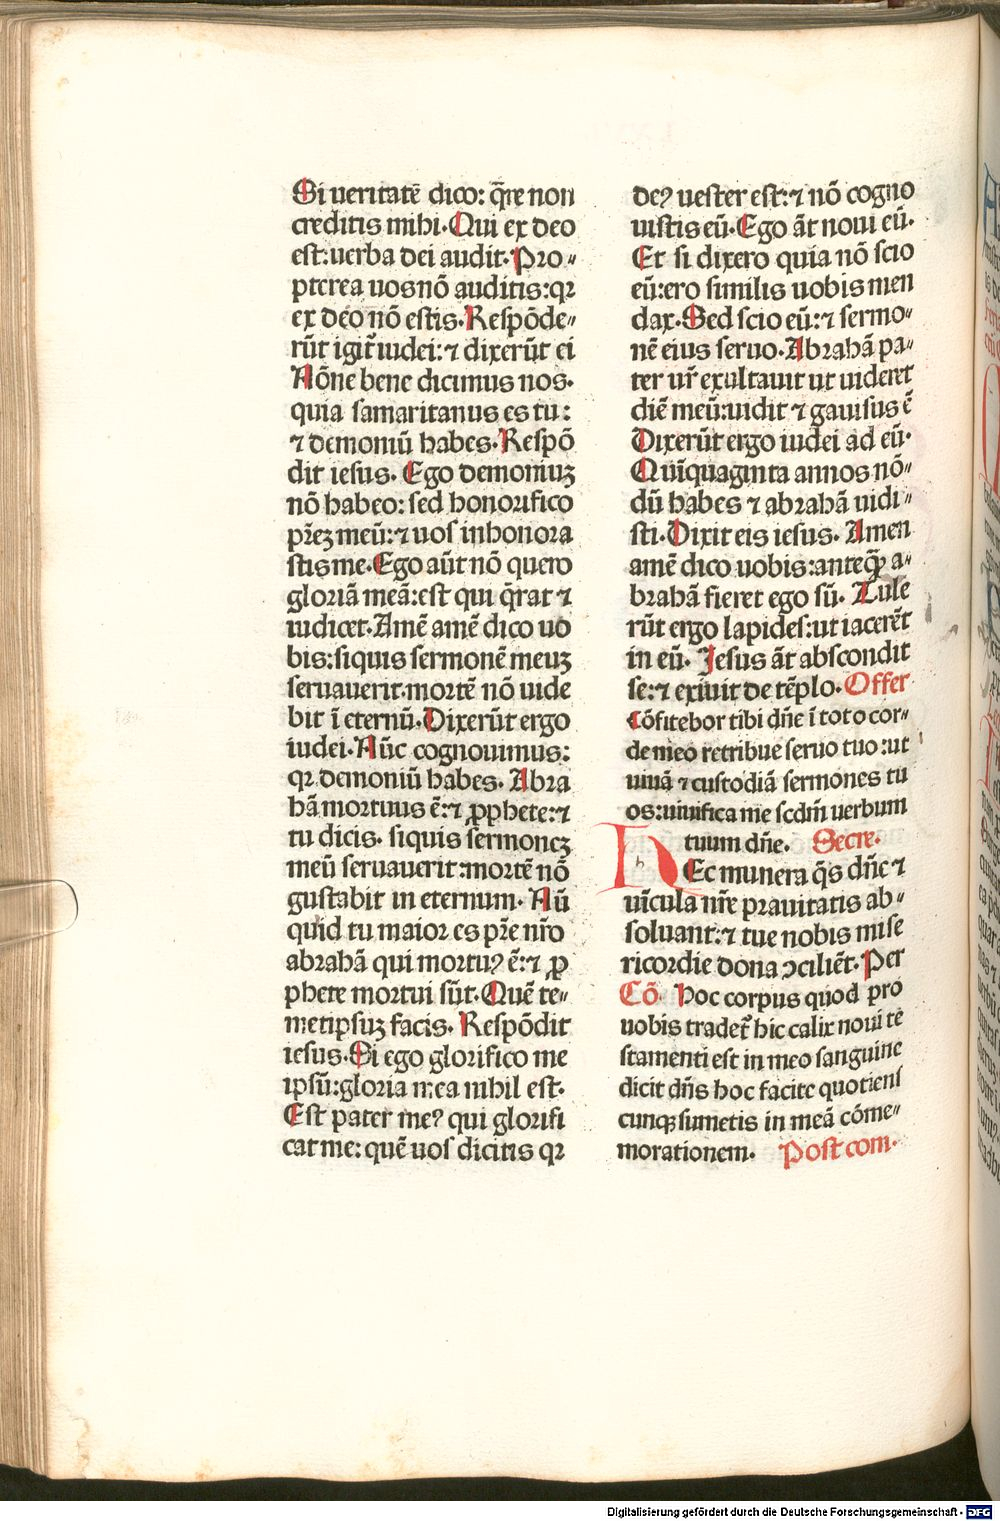 Si ueritatē dico: q̄re non
creditis mihi. Qui ex deo
est: uerba dei audit. Pro-
pterea uos nō auditis: qꝛ
ex deo nō estis. Respōde-
rūt igit̄ iudei: ⁊ dixerūt ei
Nōne bene dicimus nos.
quia samaritanus es tu:
⁊ demoniū habes. Respō
dit iesus. Ego demoniuꝫ
nō habeo: sed honorifico
pr̄eꝫ meū: ⁊ uos inhonora
stis me. Ego aūt nō quero
gloriā meā: est qui q̄rat ⁊
iudicet. Amē amē dico uo
bis: siquis sermonē meuꝫ
seruauerit. mortē nō uide
bit ī eternū. Dixerūt ergo
iudei. Nūc cognouimus:
qꝛ demoniū habes. Abra
hā mortuus ē: ⁊ ꝓphete: ⁊
tu dicis. siquis sermoneꝫ
meū seruauerit: mortē nō
gustabit in eternum. Nū
quid tu maior es pr̄e nr̄o
abrahā qui mortuꝰ ē: ⁊ ꝓ
phete mortui sūt. Quē te-
metipsuꝫ facis. Respōdit
iesus. Si ego glorifico me
ipsū: gloria mea nihil est.
Est pater meꝰ qui glorifi
cat me: quē uos dicitis qꝛ
deꝰ uester est: ⁊ nō cogno
uistis eū. Ego āt noui eū.
Et si dixero quia nō scio
eū: ero similis uobis men
dax. Sed scio eū: ⁊ sermo-
nē eius seruo. Abrahā pa-
ter ur̄ exultauit ut uideret
diē meū: uidit ⁊ gauisus ē
Dixerūt ergo iudei ad eū.
Quīquaginta annos nō-
dū habes ⁊ abrahā uidi-
sti. Dixit eis iesus. Amen
amē dico uobis: anteq̄ꝫ a-
brahā fieret ego sū. Tule
rūt ergo lapides: ut iacerēt
in eū. Jesus āt abscondit
se: ⁊ exiuit de tēplo. Offer
Cōfitebor tibi dn̄e ī toto cor-
de meo retribue seruo tuo: ut
uiuā ⁊ custodiā sermones tu
os: uiuifica me scdm̄ uerbum
tuum dn̄e. Secre.
Hec munera q̄s dn̄e ⁊
uīcula nr̄e prauitatis ab-
soluant: ⁊ tue nobis mise
ricordie dona ↄciliēt. Per
Cō. Hoc corpus quod pro
uobis tradet̄ hic calix noui te
stamenti est in meo sanguine
dicit dn̄s hoc facite quotiens
cunqꝫ sumetis in meā cōme-
morationem. Post com.
Digitalisierung gefördert durch die Deutsche Forschungsgemeinschaft - DFG